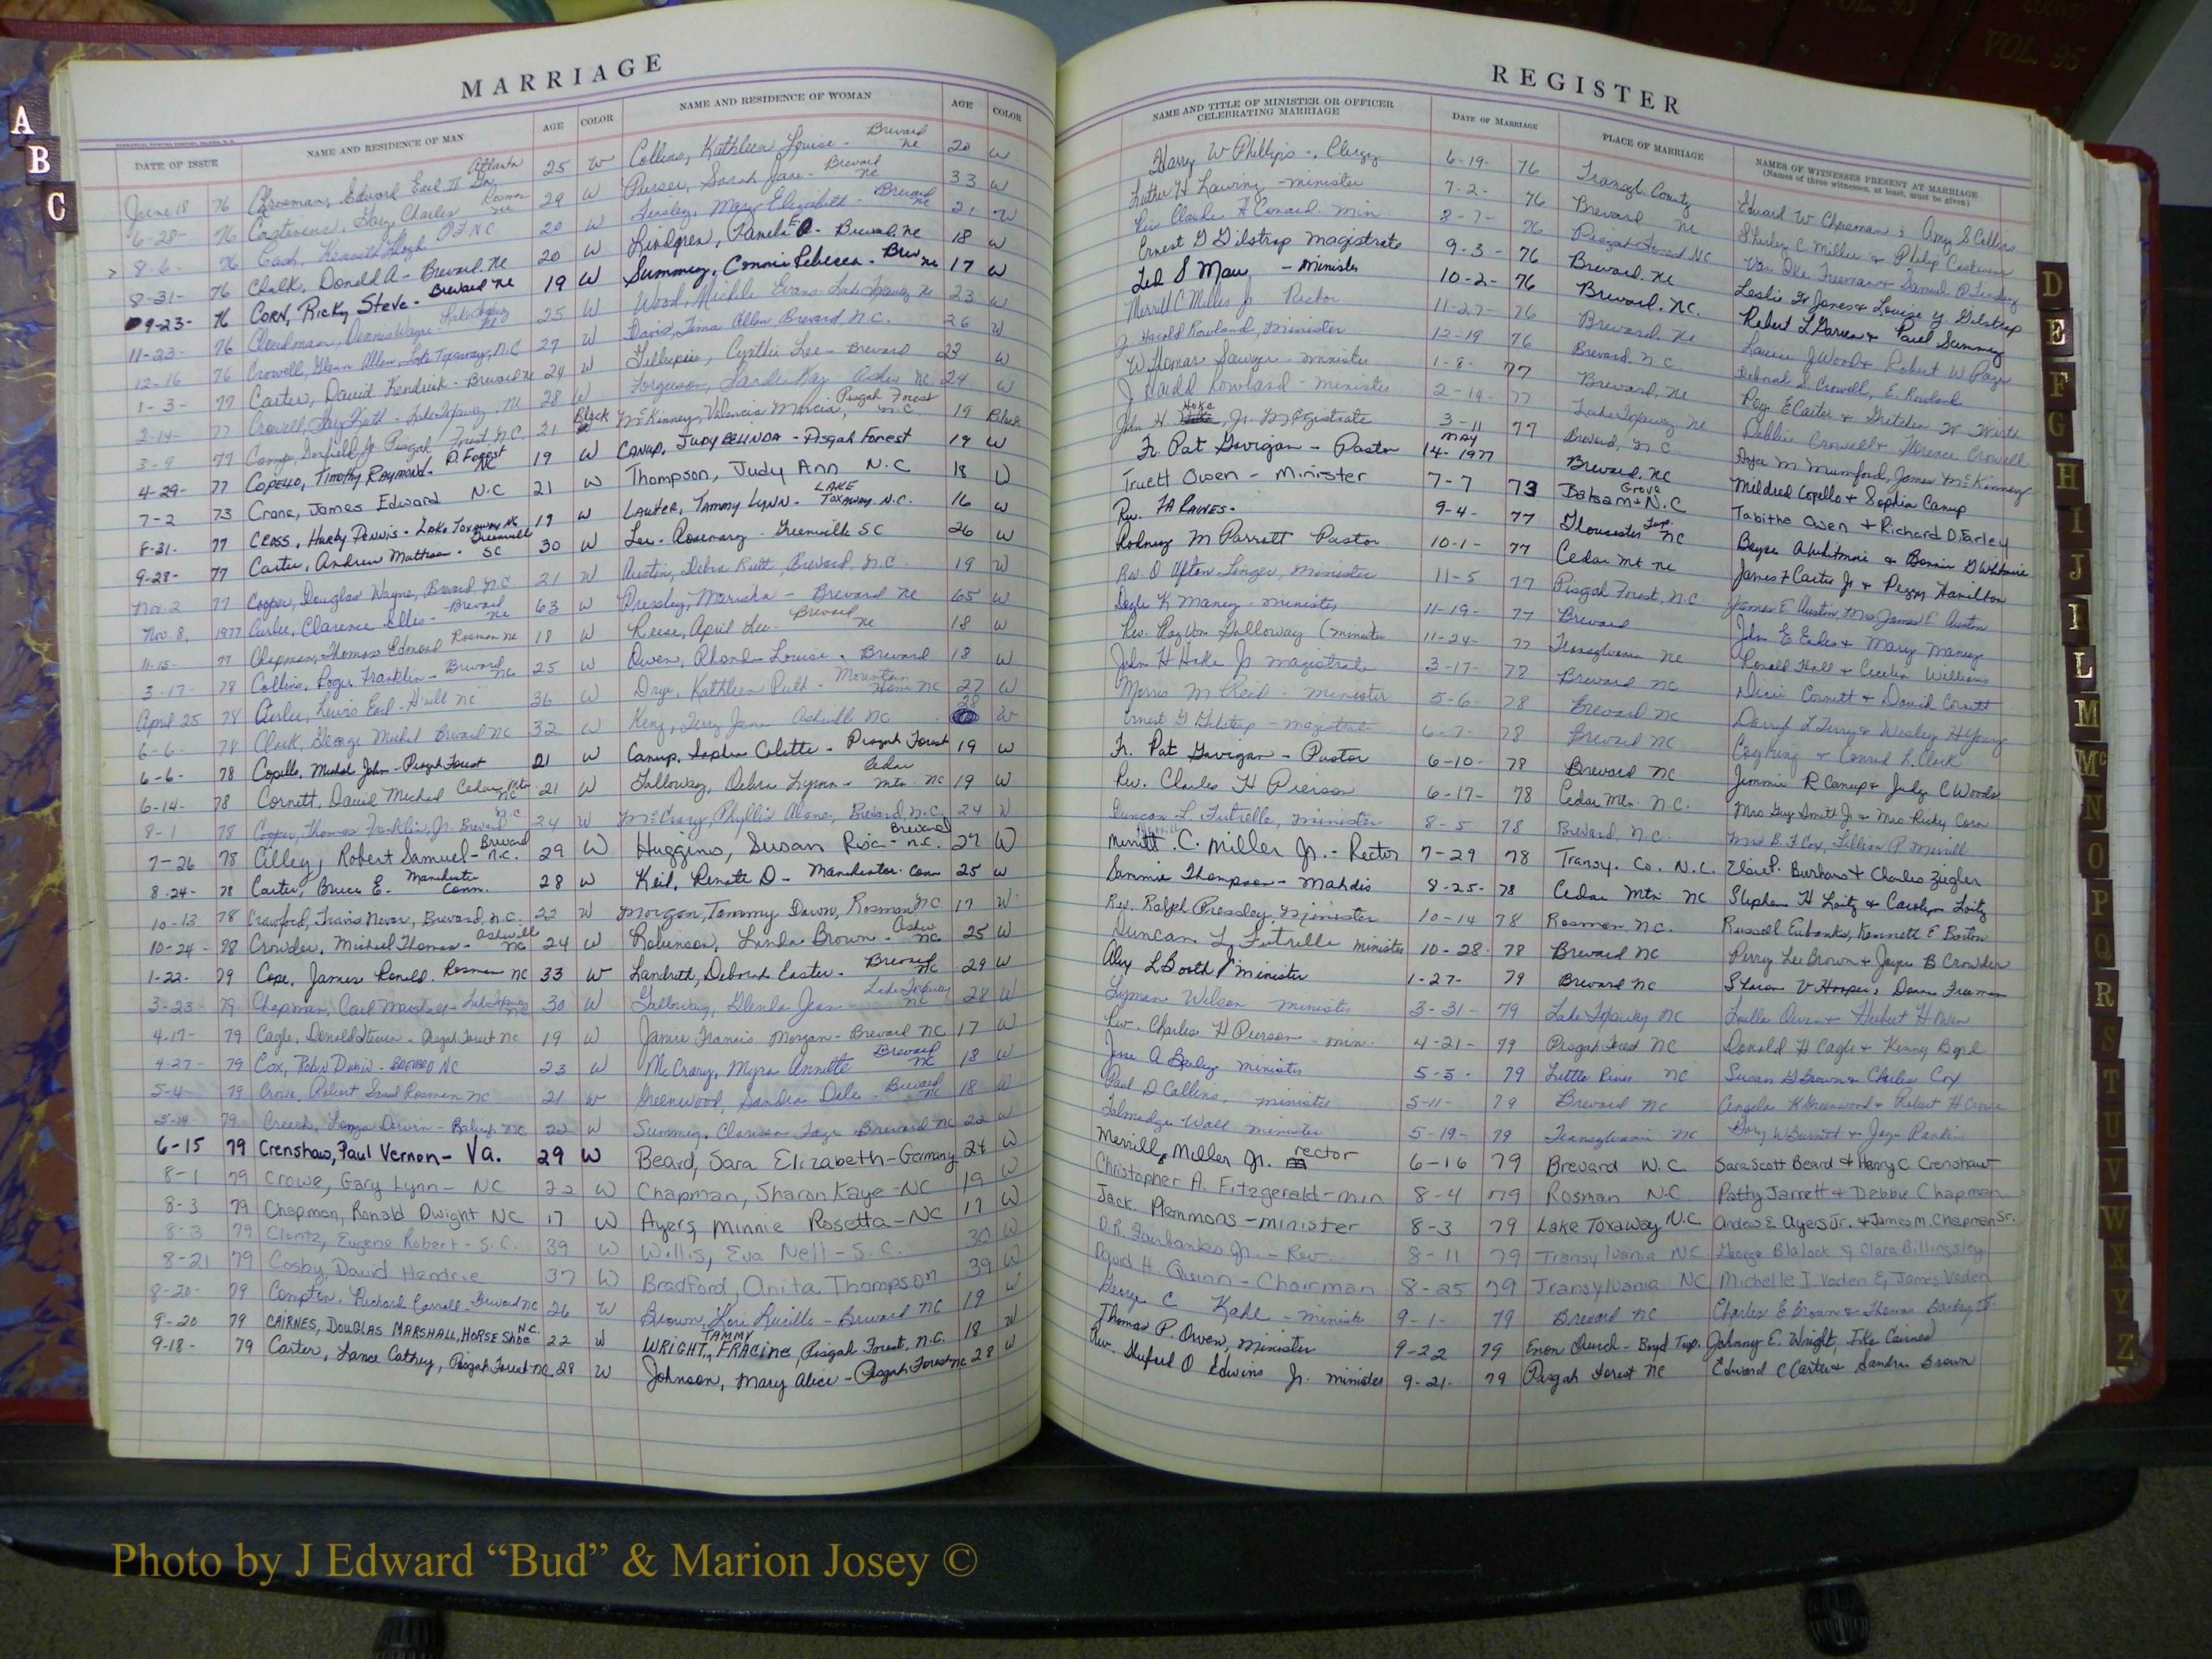 MARRIAGE
DATE OF ISSUE NAME AND RESIDENCE OF MAN AGE COLOR NAME AND RESIDENCE OF WOMAN AGE COLOR
June 18 76 Edward Earl II Atlanta Ga 25 W Collins, Kathleen Louise - Brevard NC 20 W
6-28- 76 Charles Rosman NC 29 W Purser, Sarah Jane - Brevard NC 33 W
8-6- 76 Cash, Kenneth P.F. N.C. 20 W Mary Elizabeth - Brevard NC 21 W
8-31- 76 Chalk, Donald A - Brevard. NC 20 W Lindgren, Pamela - Brevard. NC 18 W
9-23- 76 CORN, Ricky Steve - Brevard NC 19 W Summey, Connie Rebecca - Brev NC 17 W
11-23- 76 Dennis Wayne - Lake Toxaway NC 25 W Wood, Michele Evans - Lake Toxaway NC 23 W
12-16 76 Crowell, Glenn Allen Lake Toxaway, N.C 27 W Davis, Allen, Brevard N.C. 26 W
1-3- 77 Carter, David Kendrick - Brevard NC 24 W Gillespie, Cynthia Lee - Brevard 23 W
2-14- 77 Crowell, - Lake Toxaway, NC 28 W Ferguson, Kay Ashev NC. 24 W
3-9 77 Camp, Jr. Pisgah Forest N.C. 21 Black McKinney, Valencia Marcia, Pisgah Forest N.C. 19 Black
4-29- 77 COPELLO, Timothy RAYMOND - P. Forest NC 19 W CANUP, JUDY BELINDA - Pisgah Forest 19 W
7-2 73 Crane, James Edward N.C 21 W Thompson, Judy Ann N.C 18 W
8-31- 77 CROSS, Hurdy Dennis - Lake Toxaway NC 19 W LAUTER, Tammy LYNN - LAKE TOXAWAY. N.C. 16 W
9-28- 77 Carter, Andrew - Greenville SC 30 W Lee - Rosemary - Greenville SC 26 W
Nov. 2 77 Cooper, Douglas Wayne, Brevard N.C. 21 W Austin, Debra Ruth, Brevard, N.C. 19 W
Nov 8, 1977 Clarence Ellis - Brevard NC 63 W Pressley, - Brevard NC 65 W
11-15- 77 Chapman, Thomas Edmond Rosman NC 18 W Reese, April Lee - Brevard NC 18 W
3-17- 78 Collins, Roger Franklin - Brevard NC 25 W Owen, Rhonda Louise - Brevard 18 W
April 25 78 Lewis Earl - H'ville NC 36 W Kathleen Ruth - Mountain Home NC 27 W
6-6- 78 Clark, George Michael Brevard NC 32 W Jane Asheville NC 28 W
6-6- 78 Copello, Michael John - Pisgah Forest 21 W Canup, Sophia Colette - Pisgah Forest 19 W
6-14- 78 Cornett, David Michael Cedar Mtn NC 21 W Galloway, Debra Lynn - Cedar Mtn. NC 19 W
8-1 78 Cooper, Thomas Franklin, Jr. Brevard N.C 24 W McCrary, Phyllis Alane, Brevard, N.C. 24 W
7-26 78 Cilley, Robert Samuel - Brevard N.C. 29 W Huggins, Susan - Brevard N.C. 27 W
8-24- 78 Carter, Bruce E. - Manchester Conn. 28 W Keil, Renate D - Manchester Conn 25 W
10-13 78 Crawford, Travis Brevard, N.C. 22 W Morgan, Tammy Dawn, Rosman NC 17 W
10-24- 78 Crowder, Michael Thomas - Asheville NC 24 W Robinson, Linda Brown - Ashev NC 25 W
1-22- 79 Cope, James Ronald. Rosman NC 33 W Landreth, Deborah Easter - Brevard NC 29 W
3-23- 79 Chapman, Carl Marshall - Lake Toxaway NC 30 W Galloway, Glenda Jean - Lake Toxaway NC 28 W
4-17- 79 Cagle, Donald Steven - Pisgah Forest NC 19 W Janice Francis Morgan - Brevard NC 17 W
4-27- 79 Cox, Robin - BREVARD NC 23 W McCrary, Myra Annette Brevard NC 18 W
5-4- 79 Robert Rosman NC 21 W Greenwood, Sandra Dale - Brevard NC 18 W
5-14- 79 Creech, - Raleigh NC 22 W Summey, Clarissa Faye Brevard NC 22 W
6-15 79 Crenshaw, Paul Vernon - Va. 29 W Beard, Sara Elizabeth - Germany 24 W
8-1 79 Crowe, Gary Lynn - NC 22 W Chapman, Sharon Kaye - NC 19 W
8-3 79 Chapman, Ronald Dwight NC 17 W Ayers, Minnie Rosetta - NC 17 W
8-3 79 Clontz, Eugene Robert - S.C. 39 W Willis, Eva Nell - S.C. 30 W
8-21 79 Cosby, David Hendrie 37 W Bradford, Anita Thompson 39 W
8-20- 79 Compton, Richard Carroll - Brevard NC 26 W Brown, Lori Lucille - Brevard NC 19 W
9-20 79 CAIRNES, DOUGLAS MARSHALL, HORSE SHOE N.C. 22 W WRIGHT, TAMMY FRACINE, Pisgah Forest, N.C. 18 W
9-18- 79 Carter, Lance Cathey, Pisgah Forest NC 28 W Johnson, Mary Alice - Pisgah Forest NC 28 W
REGISTER
NAME AND TITLE OF MINISTER OR OFFICER CELEBRATING MARRIAGE DATE OF MARRIAGE PLACE OF MARRIAGE NAMES OF WITNESSES PRESENT AT MARRIAGE
(Names of three witnesses, at least, must be given)
Harry W Phillips -, Clergy 6-19- 76 Transyl. County Edward W Chrosman & Amy S Collins
Luther H - minister 7-2- 76 Brevard NC Shirley C Miller & Philip
Rev Claude H min 8-7- 76 Pisgah Forest NC Freeman & Samuel
Ernest G Gilstrap Magistrate 9-3- 76 Brevard. NC Leslie Jones & Louise Y Gilstrap
Ted S - Minister 10-2- 76 Brevard. NC. Robert L & Paul Summey
Merrill C Miller Jr Rector 11-27- 76 Brevard, NC J Wood & Robert W Page
J Harold Rowland, Minister 12-19 76 Brevard N.C. Deborah S. Crowell, E. Rowland
W Thomas Sawyer - minister 1-8- 77 Brevard, NC Roy E Carter & Gretchen W
J Rowland - minister 2-14- 77 Lake Toxaway NC Debbie Crowell & Florence Crowell
John H Hoke, Jr. Magistrate 3-11 77 Brevard, N.C. M Mumford, James McKinney
Fr. Pat Gavigan - Pastor MAY 14-1977 Brevard, NC Mildred Copello & Sophia Canup
Truett Owen - Minister 7-7 73 Balsam Grove N.C Tabitha Owen + Richard D. Farley
Rev. FA RAWES - 9-4- 77 Gloucester Twp. NC Whitmire & Bonnie G Whitmire
Rodney M Parrott Pastor 10-1- 77 Cedar Mt NC James F Carter Jr & Peggy Hamilton
Rev. O Afton Minister 11-5 77 Pisgah Forest, N.C. James E Austin, Mrs James E. Austin
Doyle K Maney - minister 11-19- 77 Brevard John E Eades & Mary Maney
Rev. Galloway (minister 11-24- 77 Transylvania NC Ronald Hall & Cecelia Williams
John H Hoke Jr magistrate 3-17- 78 Brevard NC Cornett & David Cornett
Morris M - minister 5-6- 78 Brevard NC L Terry & Wesley H Young
Ernest G Gilstrap - magistrate 6-7- 78 Brevard NC & Conrad L. Clark
Fr. Pat Gavigan - Pastor 6-10- 78 Brevard NC Jimmie R Canup & Judy C Woods
Rev. Charles H Pierson 6-17- 78 Cedar Mtn. N.C. Mrs Guy Smith Jr & Mrs Ricky Corn
Duncan L. Futrelle, Minister 8-5 78 Brevard, N.C. Mrs B. F Cox, Lillian P. Merrill
Merritt C. Miller Jr. - Rector 7-29 78 Transy. Co. N.C. Elsie P. Burhans & Charles Ziegler
Sammie Thompson - 8-25- 78 Cedar Mtn NC Stephen H Loitz & Carolyn Loitz
Rev. Ralph Pressley, Minister 10-14 78 Rosman N.C. Russell Eubanks, Kenneth E. Boston
Duncan L Futrelle minister 10-28- 78 Brevard NC Perry Lee Brown & Joyce B Crowder
Alex L Booth minister 1-27- 79 Brevard NC Sharon V Hooper, Donna Freeman
Lyman Wilson minister 3-31- 79 Lake Toxaway NC Owen & Hubert H Owen
Rev. Charles H Pierson - min - 4-21- 79 Pisgah Forest NC Donald H Cagle & Kenny Byrd
Jesse A Bailey minister 5-5- 79 Little River NC Susan G Brown & Charles Cox
Paul D Collins, minister 5-11- 79 Brevard NC Angela K Greenwood & Robert H
Talmadge Wall minister 5-19- 79 Transylvania NC W Burnett & Joye Rankin
Merrill Miller Jr. rector 6-16 79 Brevard N.C. Sara Scott Beard & Harry C. Crenshaw
Christopher A. Fitzgerald - min 8-4 79 Rosman N.C Patty Jarrett & Debbie Chapman
Jack Plemmons - minister 8-3 79 Lake Toxaway N.C. Andew E. Ayers Jr. & James M. Chapman Sr.
D.R. Fairbanks Jr. - Rev. 8-11 79 Transylvania NC George Blalock & Clara Billingsley
H Quinn - Chairman 8-25 79 Transylvania NC Michelle T. Vaden & James Vaden
George C Kahl - minister 9-1- 79 Brevard NC Charles E Brown & Thomas
Thomas P. Owen, Minister 9-22 79 Enon Church - Boyd Twp. Johnny E. Wright, Ike Cairnes
Rev. O Edwins Jr. minister 9-21- 79 Pisgah Forest NC Edward C Carter & Sandra Brown
A
B
C
D
E
F
G
H
I
J
L
M
Mc
N
O
P
Q
R
S
T
U
V
W
X
Y
Z
VOL. 95
COUNTY
Photo by J Edward “Bud” & Marion Josey ©